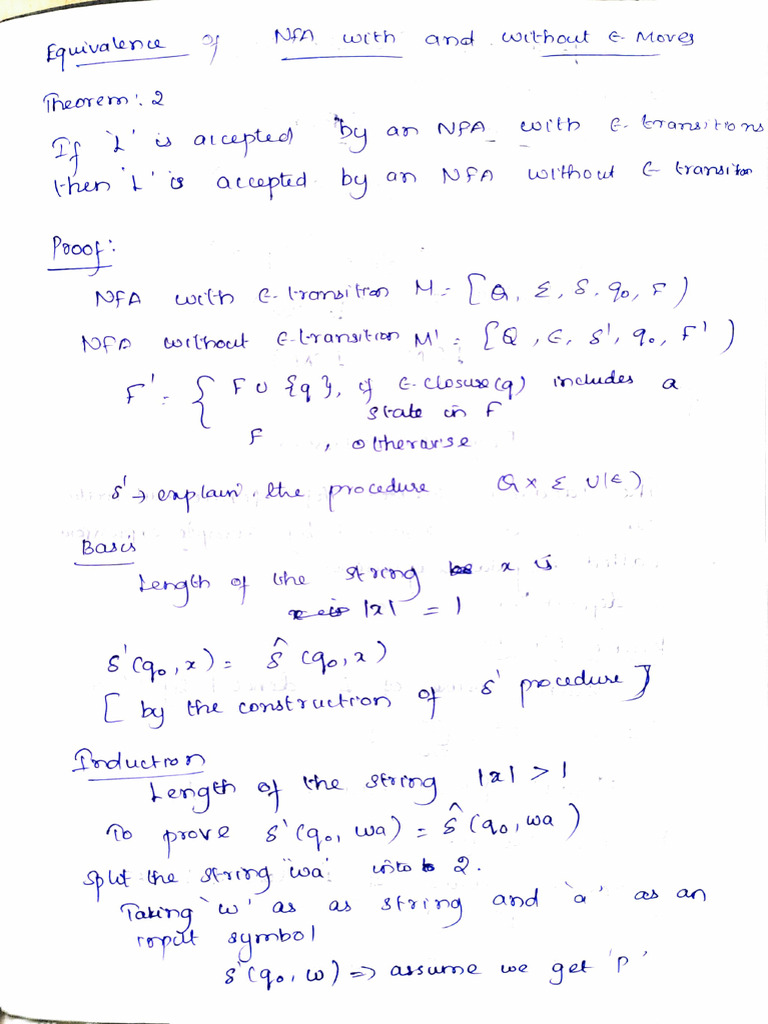 Equivalence of NFA with and without ε-Moves
Theorem: 2
If 'L' is accepted by an NFA with ε-transitions
then 'L' is accepted by an NFA without ε transiton
Proof:
NFA with ε-transition M = [Q, Σ, δ, q₀, F)
NFA without ε-transition M' = [Q, Є, δ', q₀, F')
F' = { F ∪ {q}, if ε-closure(q) includes a
state in F
F , otherwise
δ' → explain the procedure Q × Σ ∪ (ε)
Basis
Length of the string x is
|x| = 1
δ'(q₀, x) = δ̂ (q₀, x)
[ by the construction of δ' procedure]
Induction
Length of the string |x| > 1
To prove δ'(q₀, wa) = δ̂ (q₀, wa)
Split the string 'wa' into 2.
Taking 'w' as as string and 'a' as an
input symbol
δ'(q₀, w) => assume we get 'P'